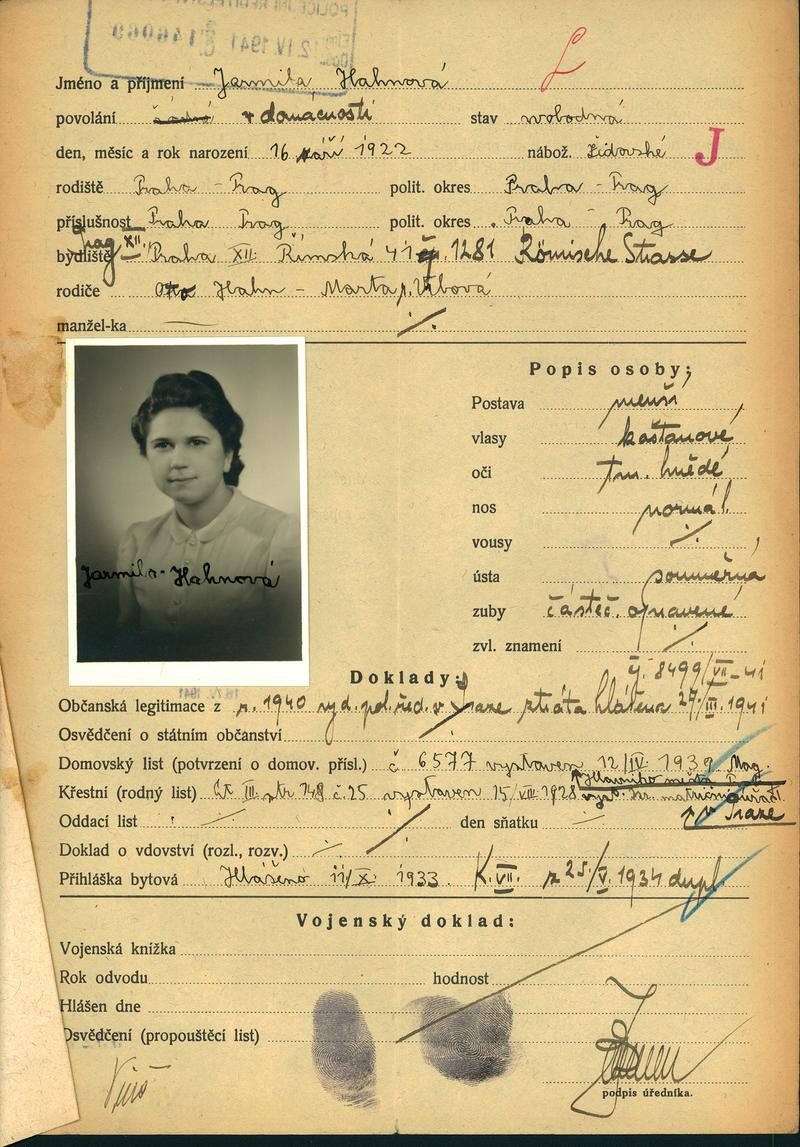 12 IV 1941
Jméno a příjmení Jarmila Hahnová
L
povolání v domácnosti stav svobodná
den, měsíc a rok narození 16 září 1922 nábož. židovské J
rodiště Praha - Prag polit. okres Praha - Prag
příslušnost Praha Prag polit. okres Praha - Prag
Prag XII.
bydliště Praha XII. Římská 41 čp. 1281 Römische Strasse
rodiče Otto Hahn - Marta r. Vrbová
manžel-ka
Popis osoby:
Postava menší
vlasy kaštanové
oči tm. hnědé
nos normál.
vousy
ústa souměrná
zuby částeč. opravené
zvl. znamení
Jarmila Hahnová
Doklady:
čj. 8499/VII-41
Občanská legitimace z r. 1940 vyd. pol. řed. v Praze ztráta hlášena 27/III. 1941
Osvědčení o státním občanství
Domovský list (potvrzení o domov. přísl.) č 6577 vystaven 12/IV. 1939 Mag.
hlavního města
Křestní (rodný list) Čt. III. str. 148 č. 25 vystaven 15/VII. 1928
v Praze
Oddací list den sňatku
Doklad o vdovství (rozl., rozv.)
Přihláška bytová Hlášeno 11/X. 1933. K. VII. z 25/V. 1934 dupl.
Vojenský doklad:
Vojenská knížka
Rok odvodu hodnost
Hlášen dne
Osvědčení (propouštěcí list)
podpis úředníka.